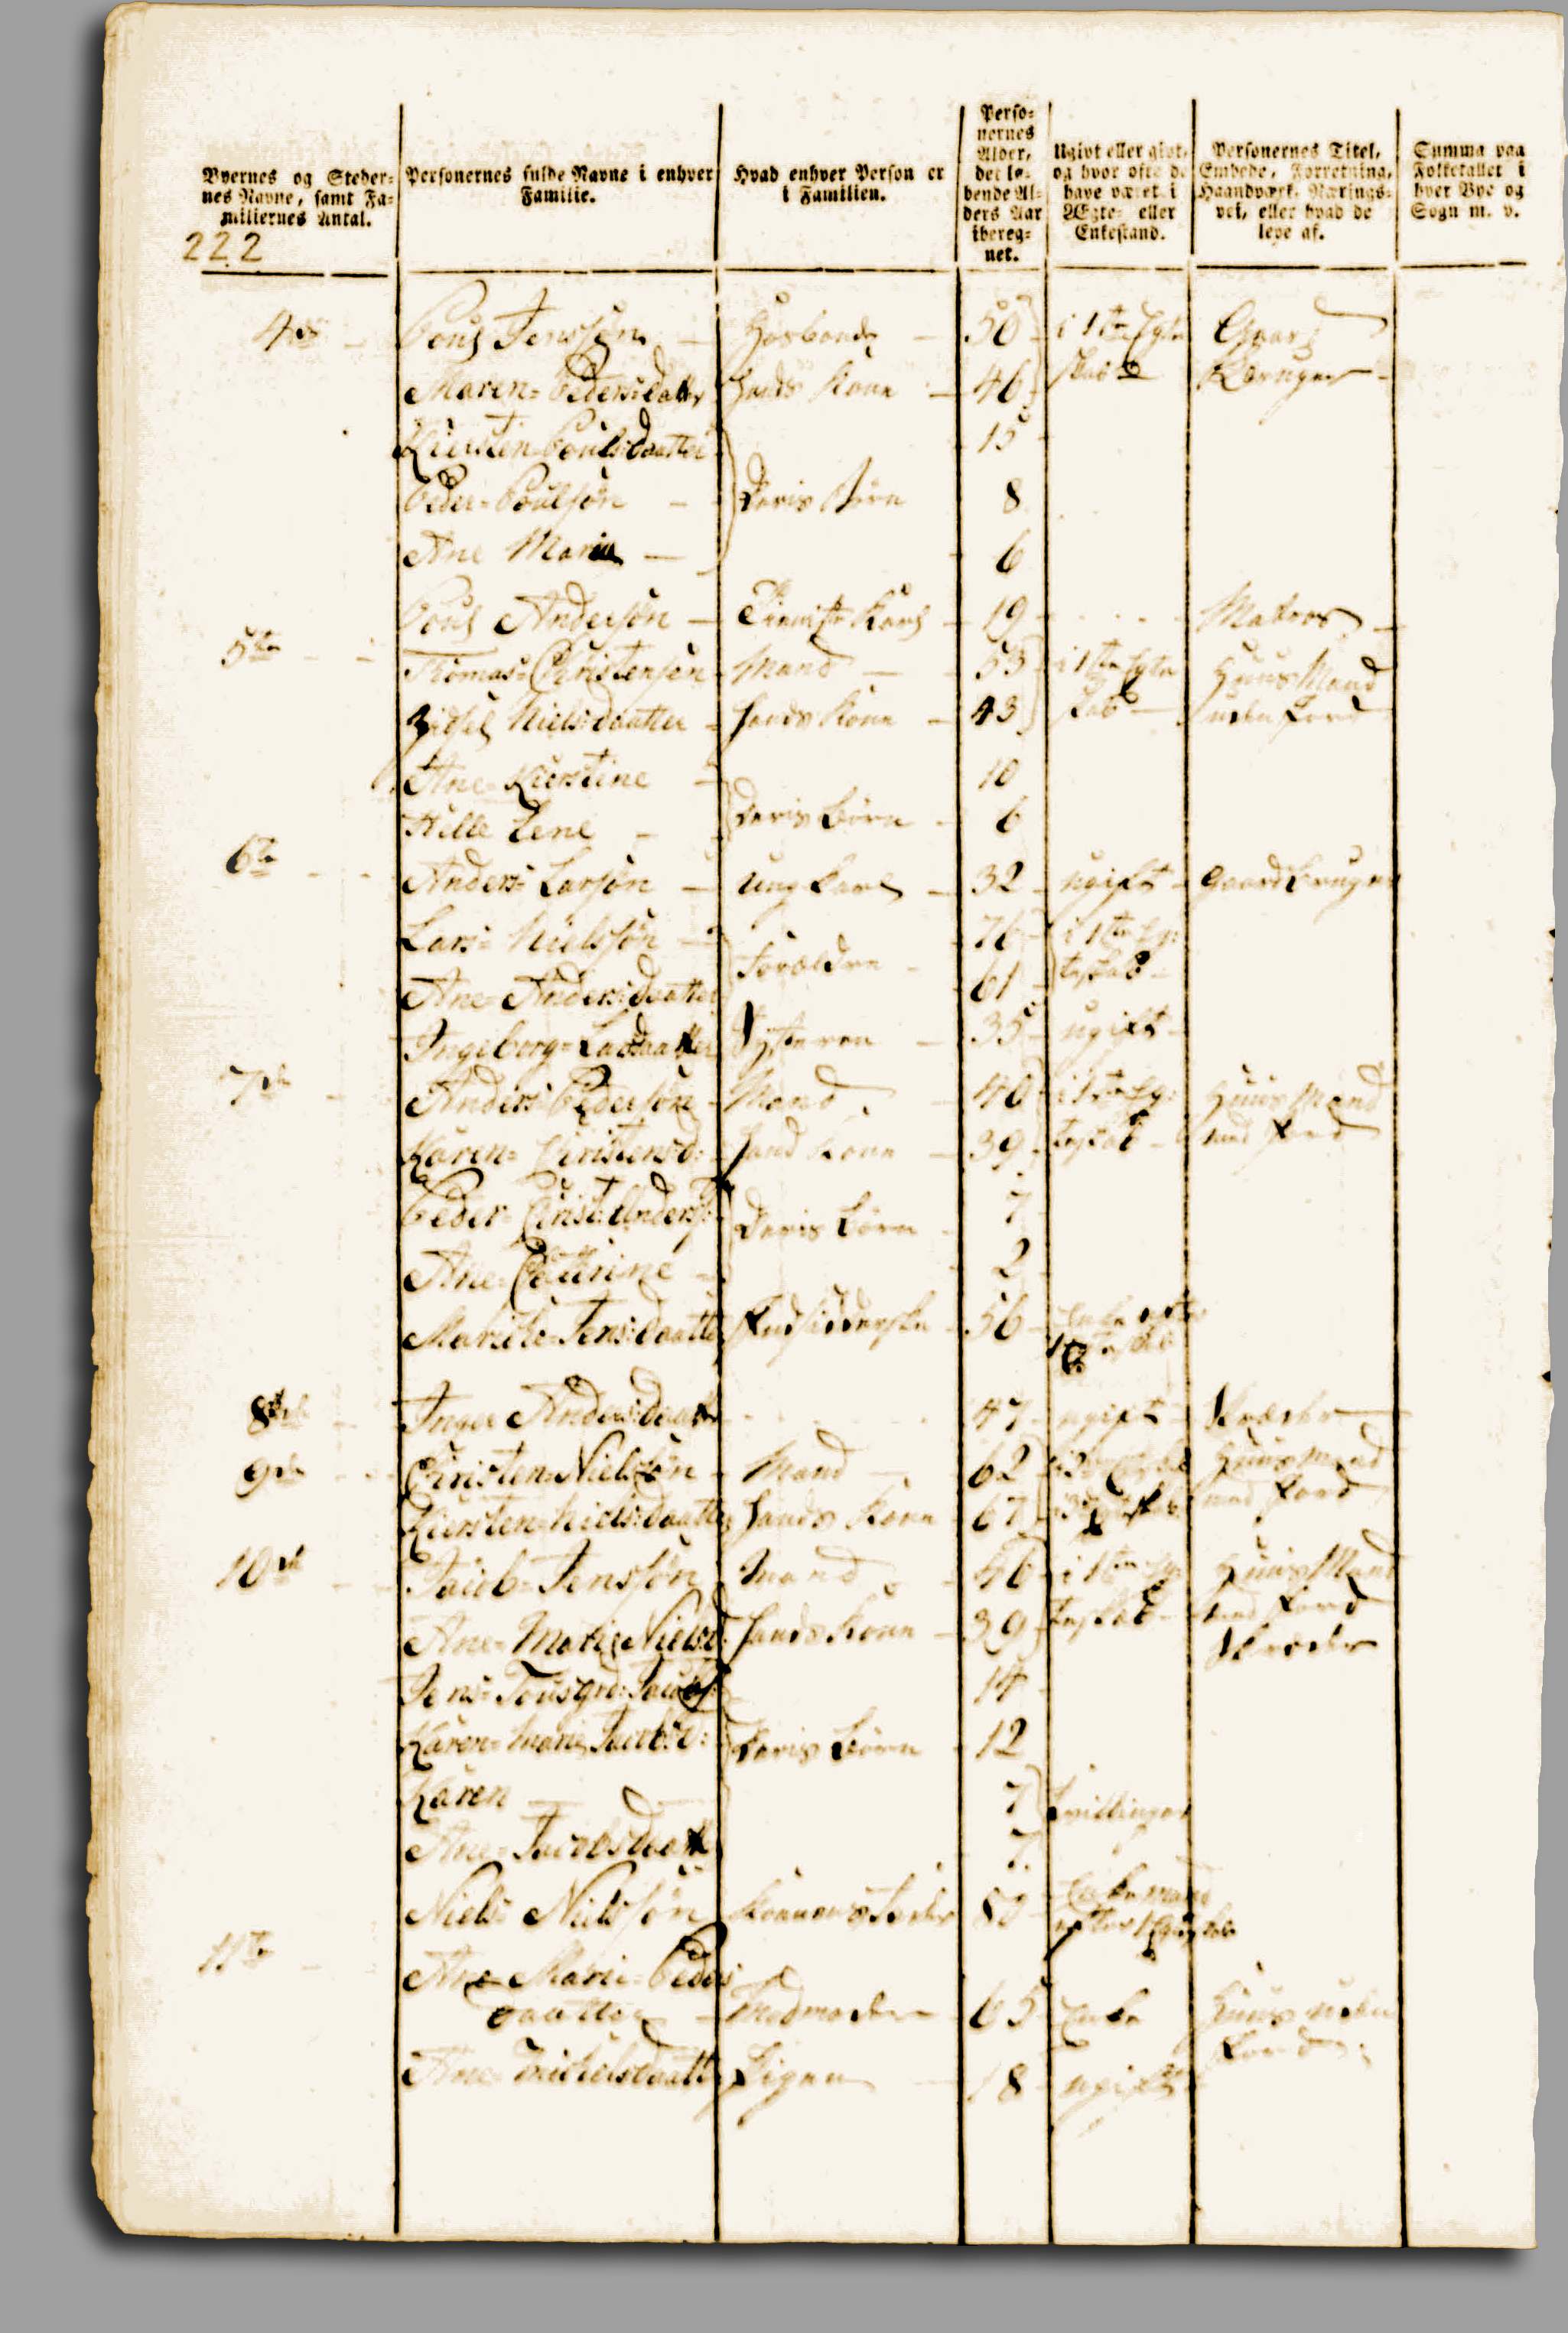 Byernes og Steder-
nes Navne, samt Fa-
miliernes Antal.
222
Personernes fulde Navne i enhver
Familie.
Hvad enhver Person er
i Familien.
Perso-
nernes
Alder,
det lø-
bende Al-
ders Aar
ibereg-
net.
Ugivt eller givt,
og hvor ofte de
have været i
Ægte- eller
Enkestand.
Personernes Titel,
Embede, Forretning,
Haandværk, Nærings-
vei, eller hvad de
leve af.
Summa paa
Folketallet i
hver Bye og
Sogn m. v.
4de Poul Jenssøn Hosbonde 50 i 1te Egte Gaard
Maren Pedersdatter hands Kone 46 skab Bruger
Kiersten Poulsdaatter 15
Peder Poulsøn Deris Børn 8
Ane Maria 6
Poul Andersøn Tieniste Karl 19 Matros
5te Thomas Christensøn Mand 53 i 1te Egte Huus Mand
Zidsel Nielsdaatter hands Kone 43 skab uden Jord
Ane Kierstine 10
Hille Lene Deris Børn 6
6te Anders Larsøn Ung Karl 32 ugift Gaard bruger
Lars Nielssøn 76 i 1te Eg:
Ane Andersdaatter Forældre 61 teskab
Ingeborg Larsdaatter Systeren 35 ugift
7de Anders Pedersøn Mand 40 i 1te Eg: Huus Mand
Karen Christensd: hand Kone 39 teskab med Jord
Peder Christ: Anders: 7
Deris Børn
Ane Cathrine 2
Jens:daatter Indsidderske 56 Enke efter
8de Inger Andersdaatter 47 ugift
9de Christen Nielssøn Mand 62 Huus Mand
Kiersten Nielsdaatter hands Kone 67 med Jord
10de Jacob Jenssøn Mand 46 i 1te Eg: Huus Mand
Ane Marie Nielsd: hands Kone 39 teskab med Jord
Skræder
Jens 14
Karen Marie Jacobsd: Deris Børn 12
Karen 7 tvillinger
Ane Jacobsdaatter 7
Niels Nielssøn Konens Fader Enkemand
efter
11te Ane Marie Peders
daatter Madmoder 65 Enke Huus uden
Jord
Ane Michelsdaatter Pigen 18 ugift